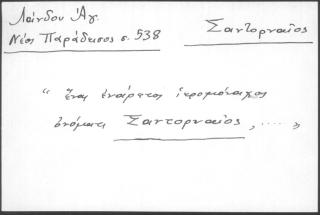 Λαύδου Ἁγ.
Νέος Παράδεισος σ. 538
Σαντορναῖος
“ ἕνας ἐνάρετος ἱερομόναχος
ὀνόματι Σαντορναῖος, .... »